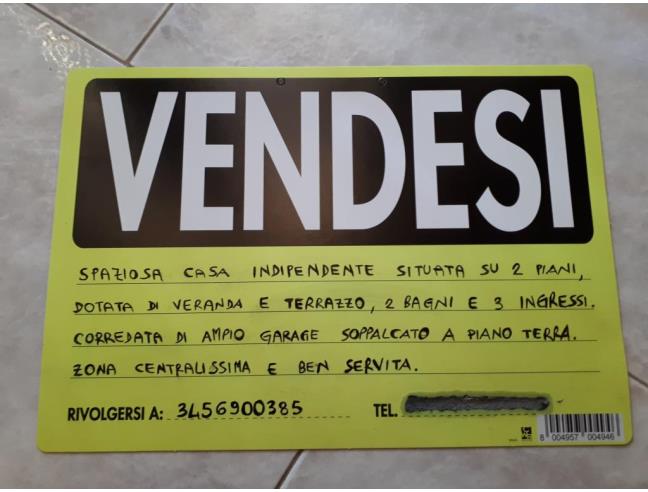 VENDESI
SPAZIOSA CASA INDIPENDENTE SITUATA SU 2 PIANI,
DOTATA DI VERANDA E TERRAZZO, 2 BAGNI E 3 INGRESSI.
CORREDATA DI AMPIO GARAGE SOPPALCATO A PIANO TERRA.
ZONA CENTRALISSIMA E BEN SERVITA.
RIVOLGERSI A: 3456900385 TEL.
8 004957 004946